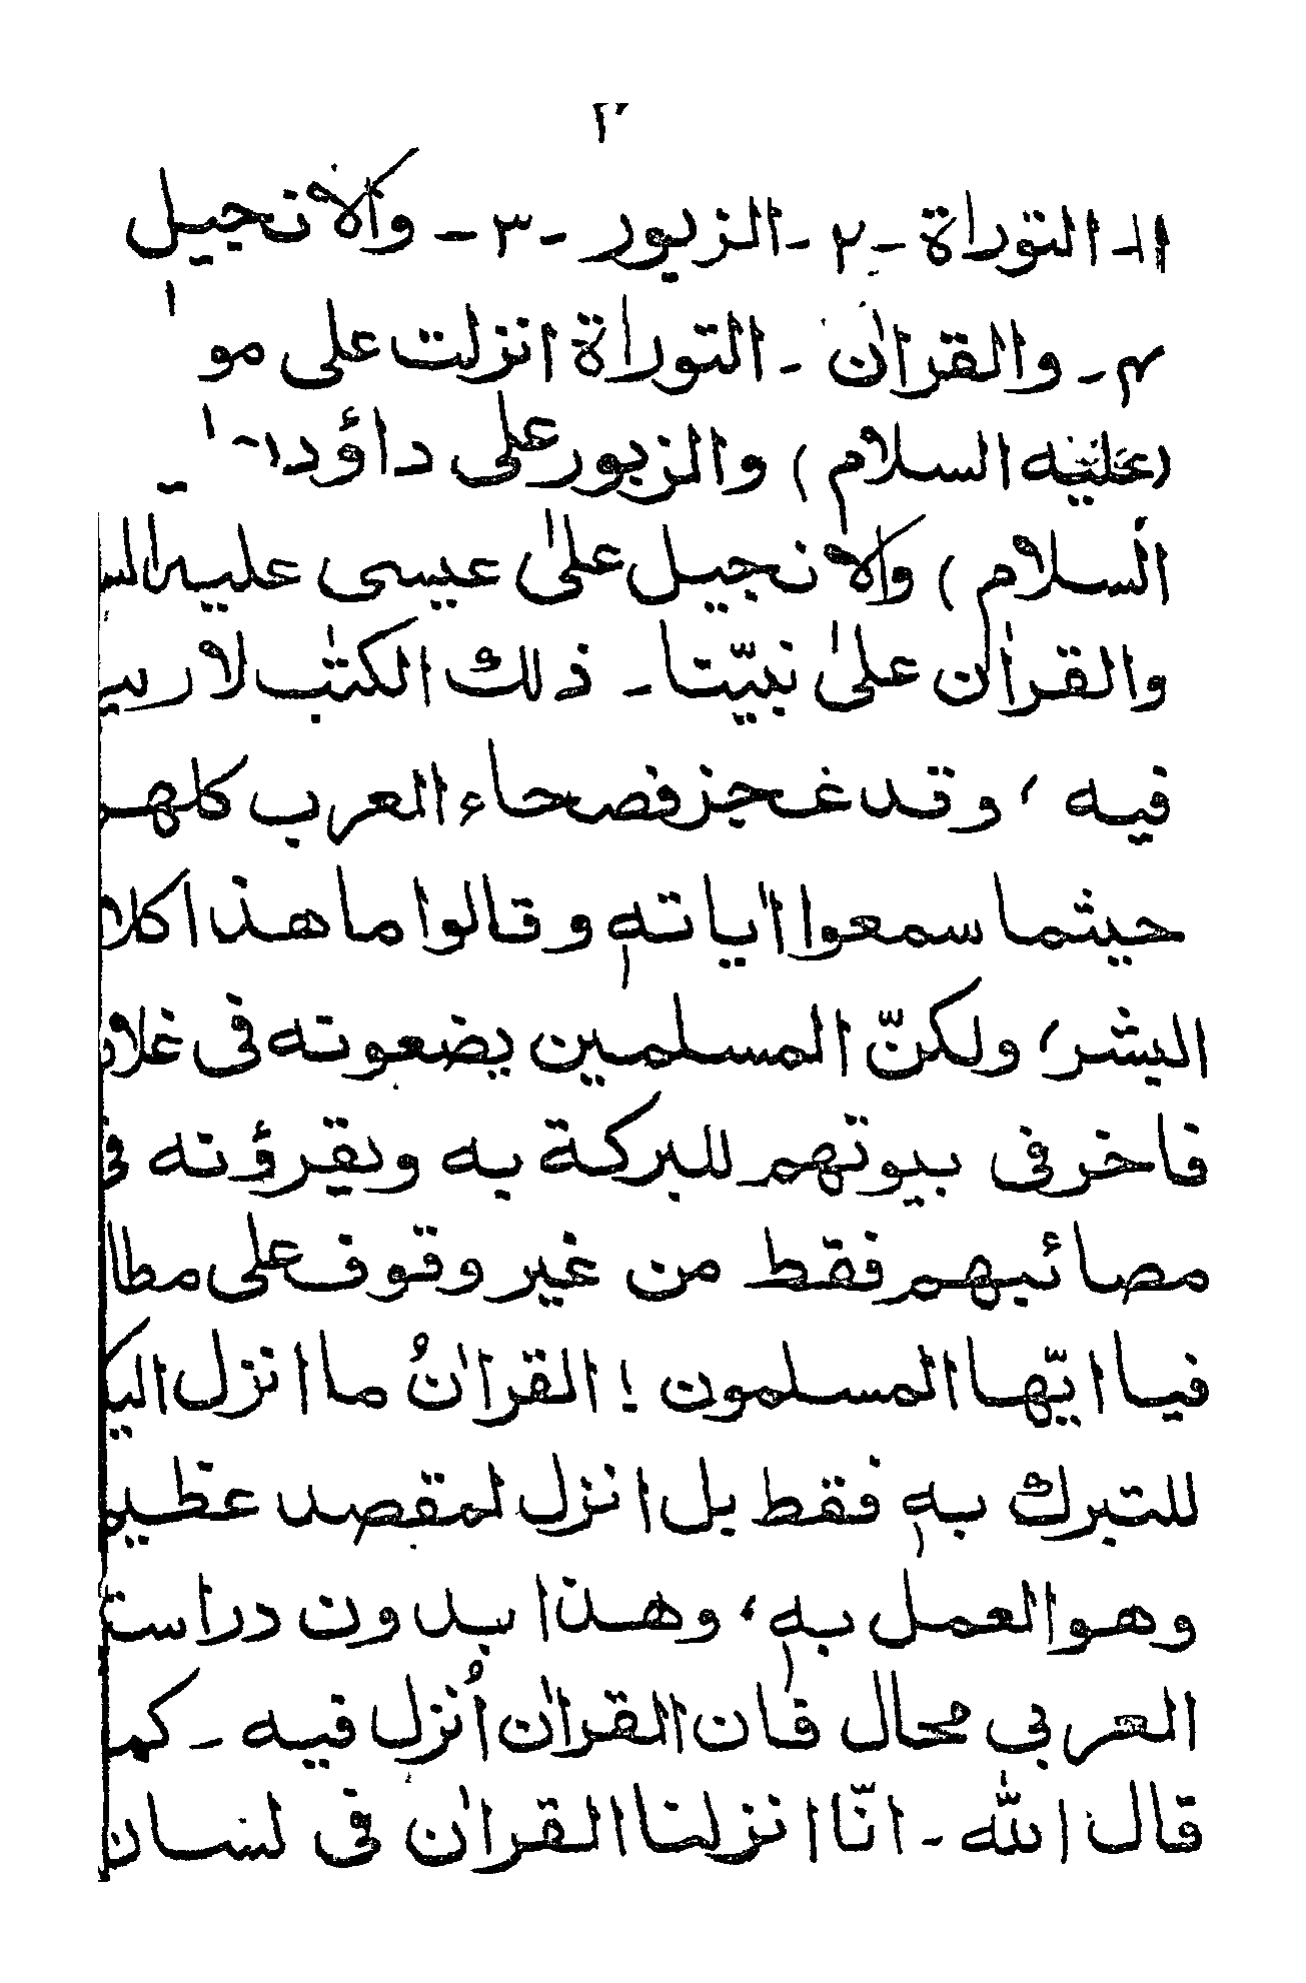 ١ـ التوراة ـ ٢ ـ الزبور ـ ٣ ـ والانجيل
٤ ـ والقراٰن ـ التوراة انزلت على مو
(عليه السلام) والزبور على داؤد
السلام) والانجيل علىٰ عيسى عليه الس
والقراٰن علىٰ نبيّنا ـ ذلك الكتٰب لا ريب
فيه ، وقد عجز فصحاء العرب كلهم
حيثما سمعوا اٰياته وقالوا ما هذا كلا
البشر، ولكنّ المسلمين يضعونه فى غلاف
فاخر فى بيوتهم للبركة به ويقرؤنه فى
مصائبهم فقط من غير وقوف على مطا
فيا ايّها المسلمون ! القراٰنُ ما انزل اليك
للتبرك به فقط بل انزل لمقصد عظيم
وهو العمل به ، وهذا بدون دراسة
العربي محال فان القراٰن اُنزل فيه ـ كما
قال الله ـ انّا انزلنا القراٰن فى لسان